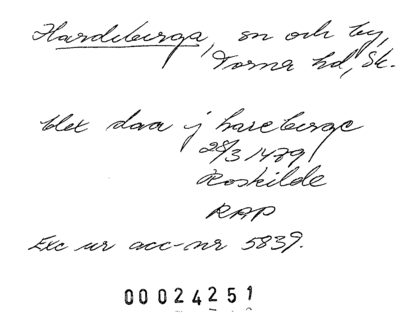 Hardeberga, sn och by,
Torna hd, Sk.
blet daa j hareberge
28/3 1479
Roskilde
RAP
Exc ur acc-nr 5839.
00024251